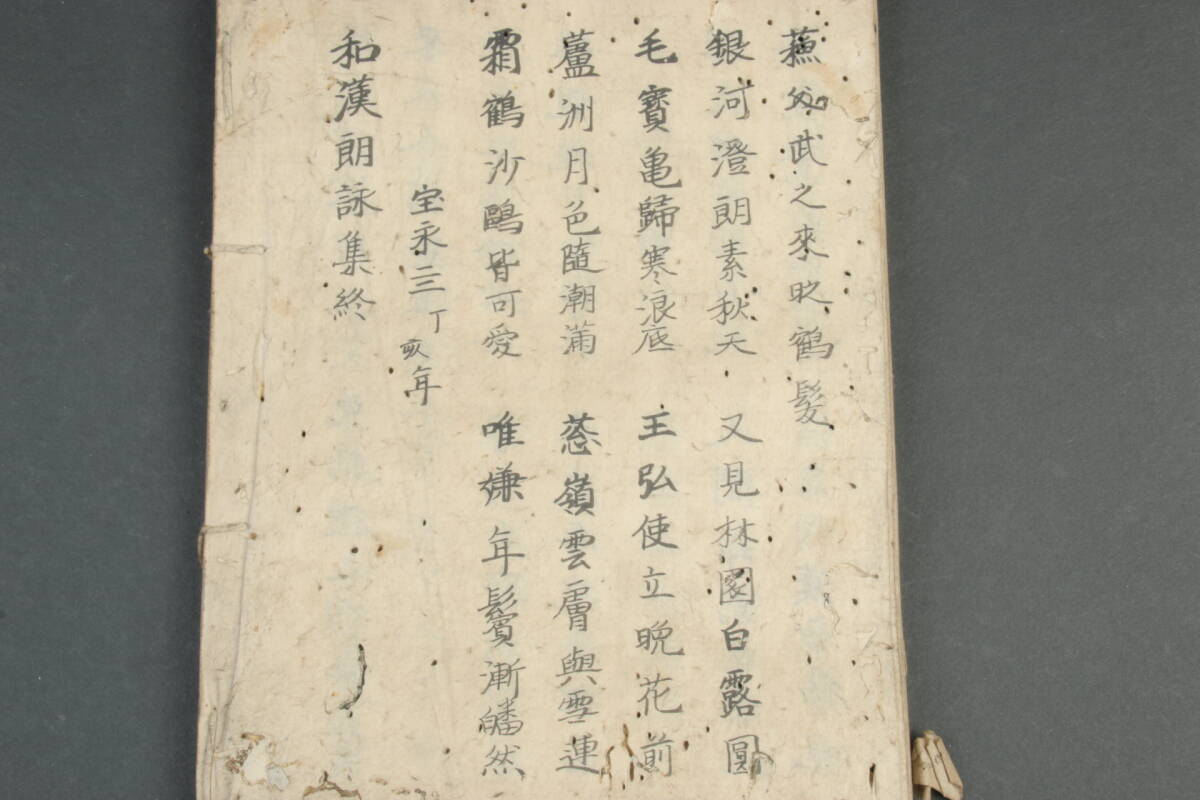 武之來時鶴髪
銀河澄朗素秋天 又見林園白露圓
毛寶亀歸寒浪底 王弘使立晩花前
蘆洲月色隨潮満 葱嶺雲膚與雪連
霜鶴沙鷗皆可愛 唯嫌年鬢漸皤然
宝永三丁亥年
和漢朗詠集終